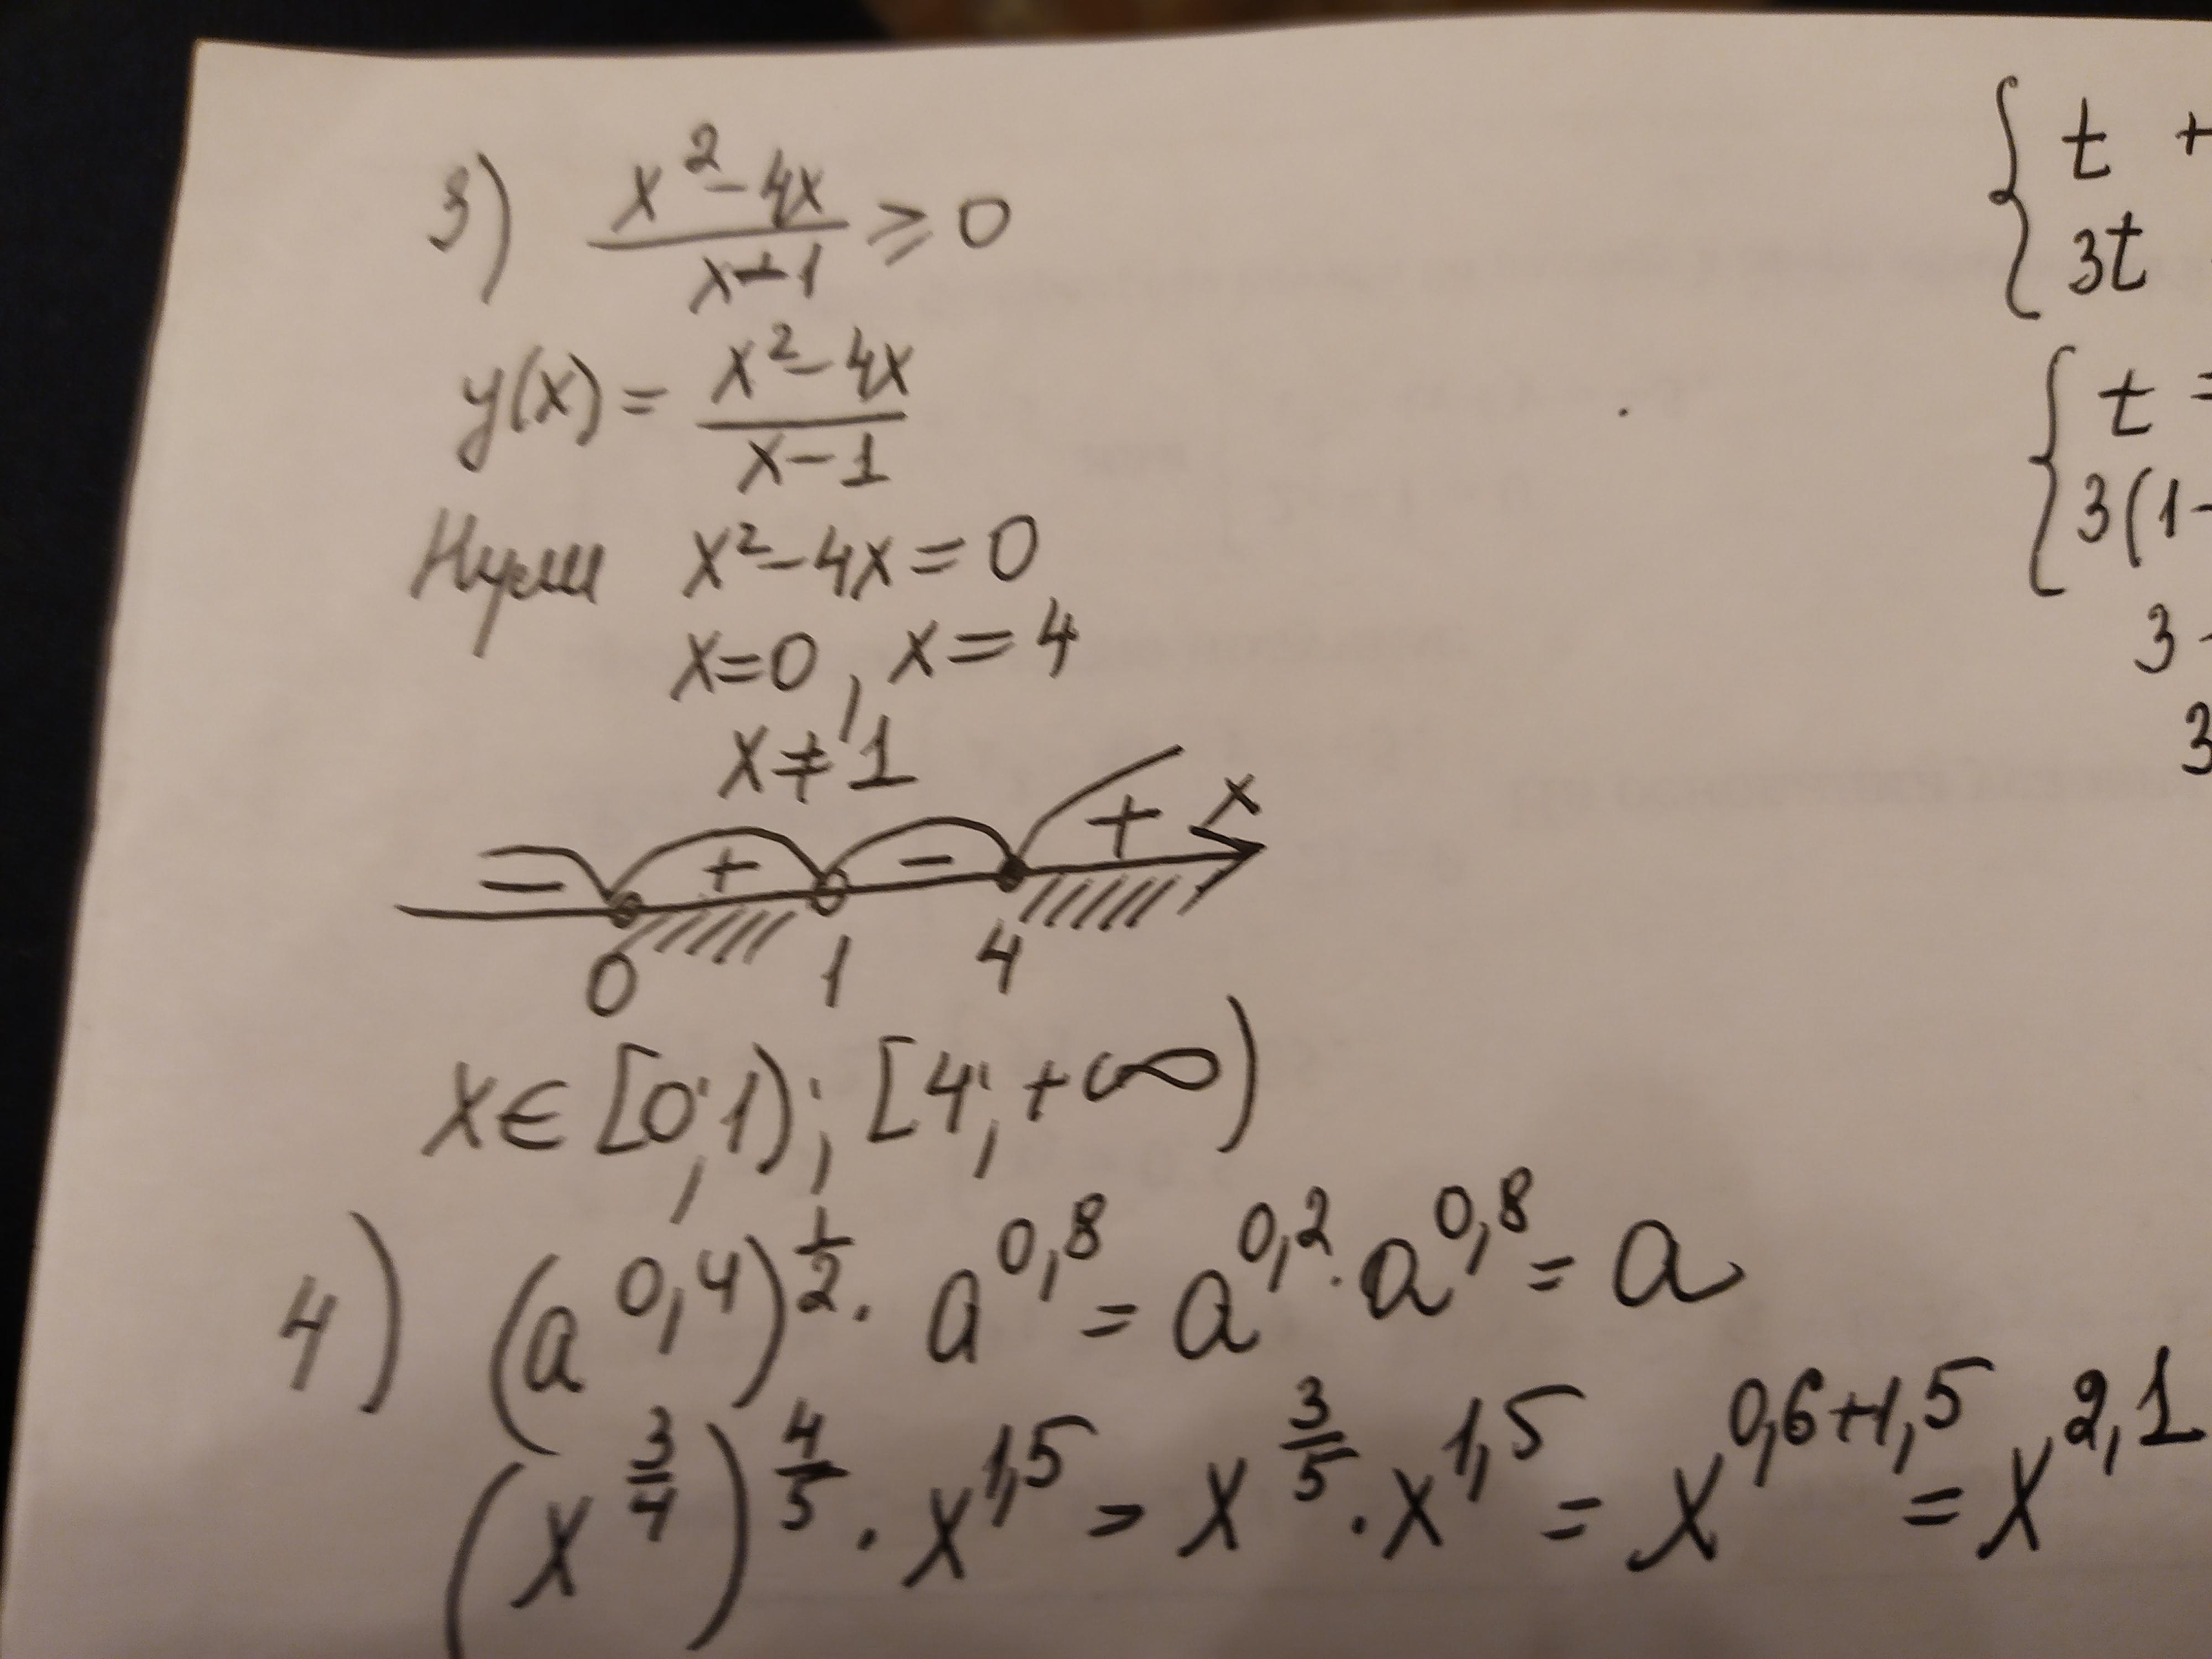 3) (x² - 4x)/(x-1) ⩾ 0
y(x) = (x² - 4x)/(x - 1)
Нули x² - 4x = 0
x = 0, x = 4
x ≠ 1
= + - + x
0 1 4
x ∈ [0; 1); [4; +∞)
4) (a^0,4)^(1/2) · a^0,8 = a^0,2 · a^0,8 = a
(x^(3/4))^(4/5) · x^1,5 = x^(3/5) · x^1,5 = x^(0,6+1,5) = x^2,1
{ t +
3t
{ t =
3(1-
3 -
3